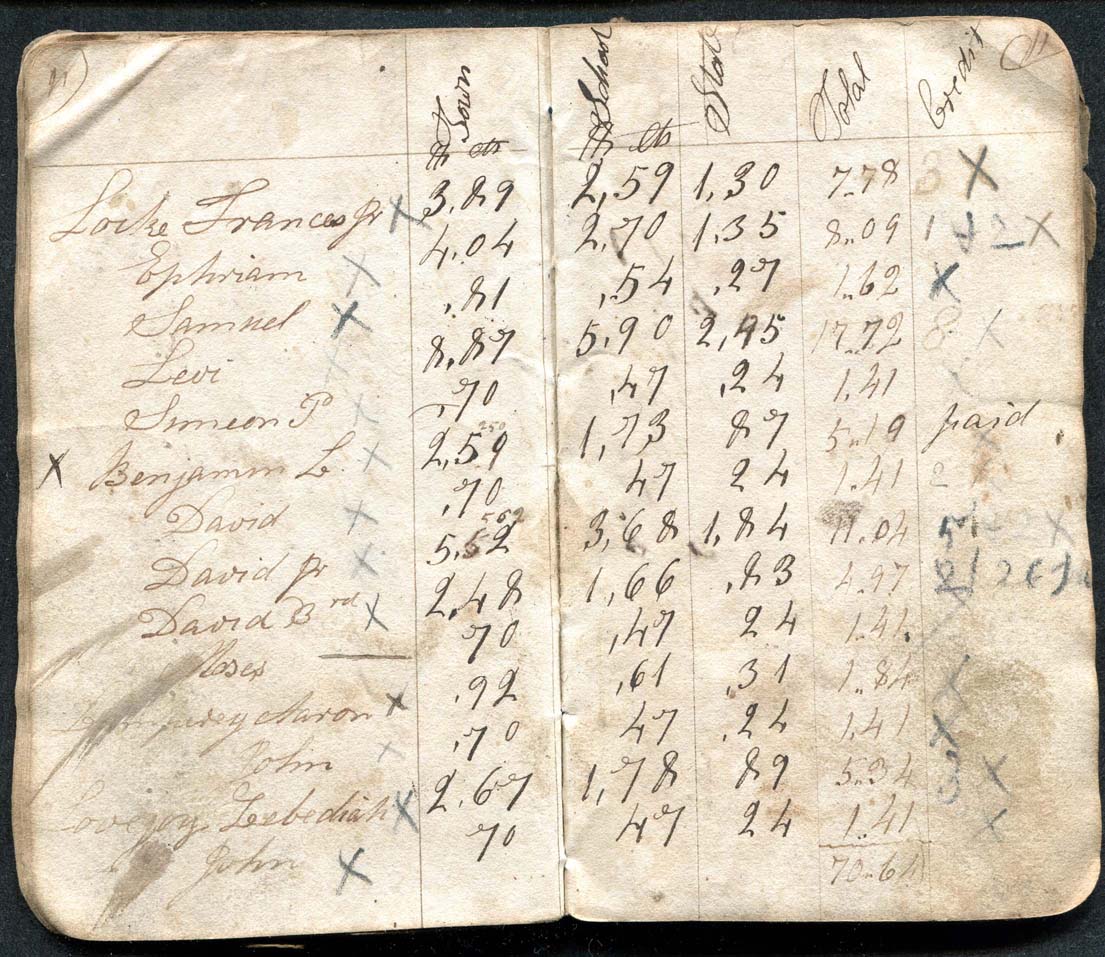 11 11
Town School State Total Credit
$ cts $ cts
Locke Frances Jr X 3,89 2,59 1,30 7..78 3 X
Ephriam X 4,04 2,70 1,35 8..09 1 42 X
Samuel X ,81 ,54 ,27 1..62 X
Levi X 8,87 5,90 2,95 17..72 8 X
Simeon P X ,70 ,47 ,24 1.41
X Benjamin L. X 2,59 1,73 87 5..19 paid
David X ,70 47 24 1.41 2
David Jr X 5,52 3,68 1,84 11.04 X
David 3rd X 2,48 1,66 ,83 4.97
Moses 70 ,47 24 1.41
Aaron X ,92 ,61 ,31 1..84 X
John X ,70 47 ,24 1.41 X
Lovejoy Zebediah X 2,67 1,78 89 5..34 3 X
John X 70 47 24 1.41 X
70..64